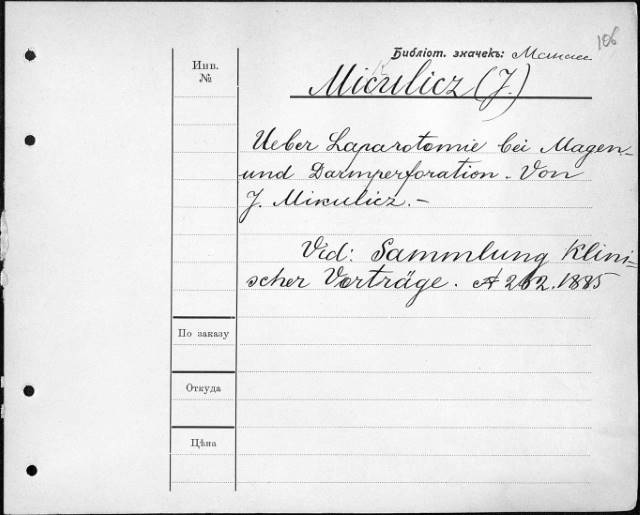 106
Библіот. значекъ:
Инв.
№
Miculicz (J.)
Ueber Laparotomie bei Magen-
und Darmperforation. Von
J. Mikulicz. —
Vid: Sammlung Klini=
scher Vorträge. № 262. 1885
По заказу
Откуда
Цѣна